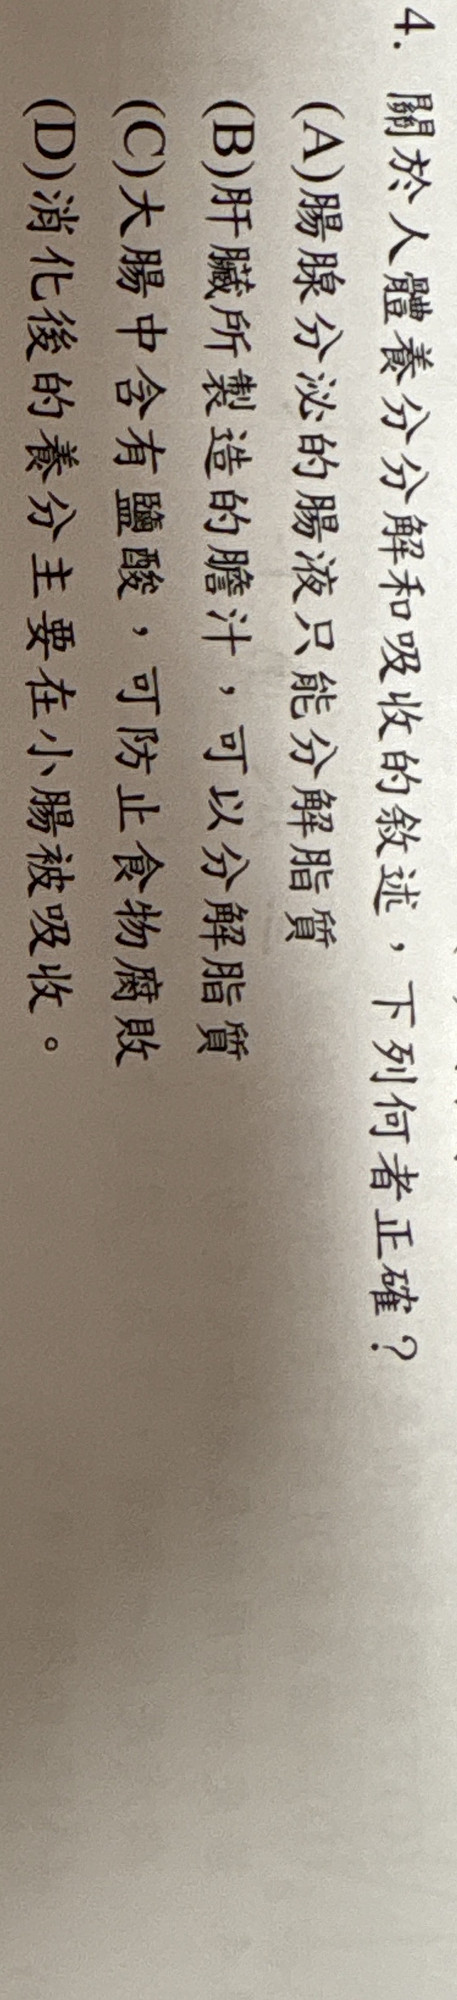 4. 關於人體養分分解和吸收的敘述，下列何者正確？
(A)腸腺分泌的腸液只能分解脂質
(B)肝臟所製造的膽汁，可以分解脂質
(C)大腸中含有鹽酸，可防止食物腐敗
(D)消化後的養分主要在小腸被吸收。